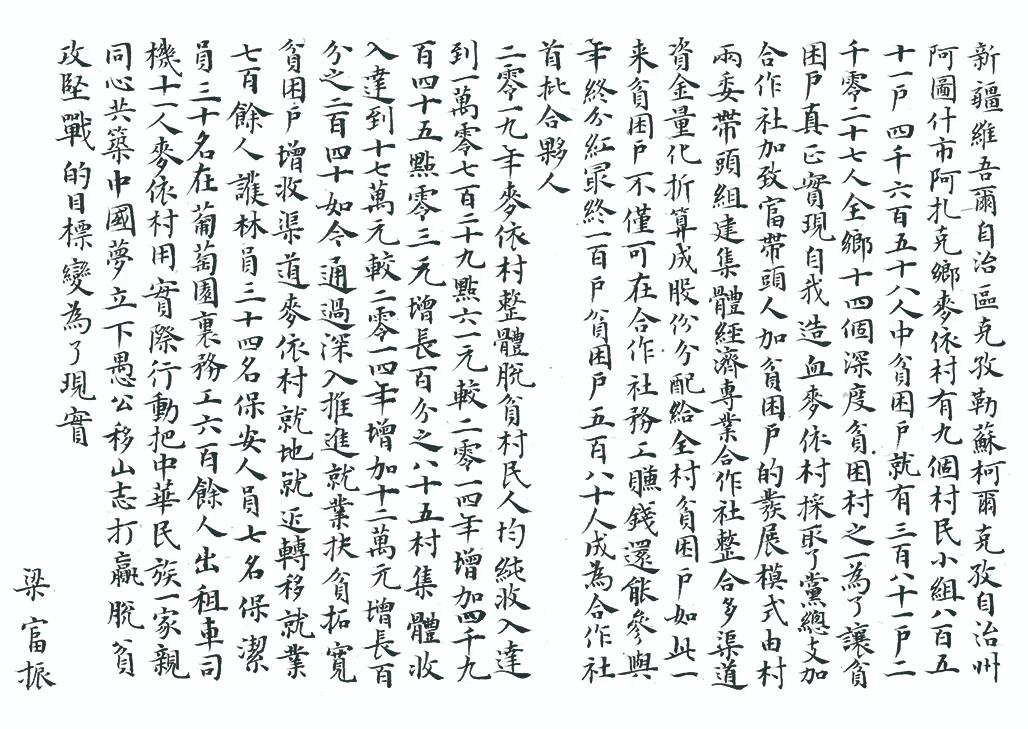 新疆維吾爾自治區克孜勒蘇柯爾克孜自治州
阿圖什市阿扎克鄉麥依村有九個村民小組八百五
十一戶四千六百五十八人中貧困戶就有三百八十一戶二
千零二十七人全鄉十四個深度貧困村之一為了讓貧
困戶真正實現自我造血麥依村採取了黨總支加
合作社加致富帶頭人加貧困戶的發展模式由村
兩委帶頭組建集體經濟專業合作社整合多渠道
資金量化折算成股份分配給全村貧困戶如此一
來貧困戶不僅可在合作社務工賺錢還能參與
年終分紅最終一百戶貧困戶五百八十人成為合作社
首批合夥人
二零一九年麥依村整體脫貧村民人均純收入達
到一萬零七百二十九點六一元較二零一四年增加四千九
百四十五點零三元增長百分之八十五村集體收
入達到十七萬元較二零一四年增加十二萬元增長百
分之二百四十如今通過深入推進就業扶貧拓寬
貧困戶增收渠道麥依村就地就近轉移就業
七百餘人護林員三十四名保安人員七名保潔
員三十名在葡萄園裏務工六百餘人出租車司
機十一人麥依村用實際行動把中華民族一家親
同心共築中國夢立下愚公移山志打贏脫貧
攻堅戰的目標變為了現實
梁富振